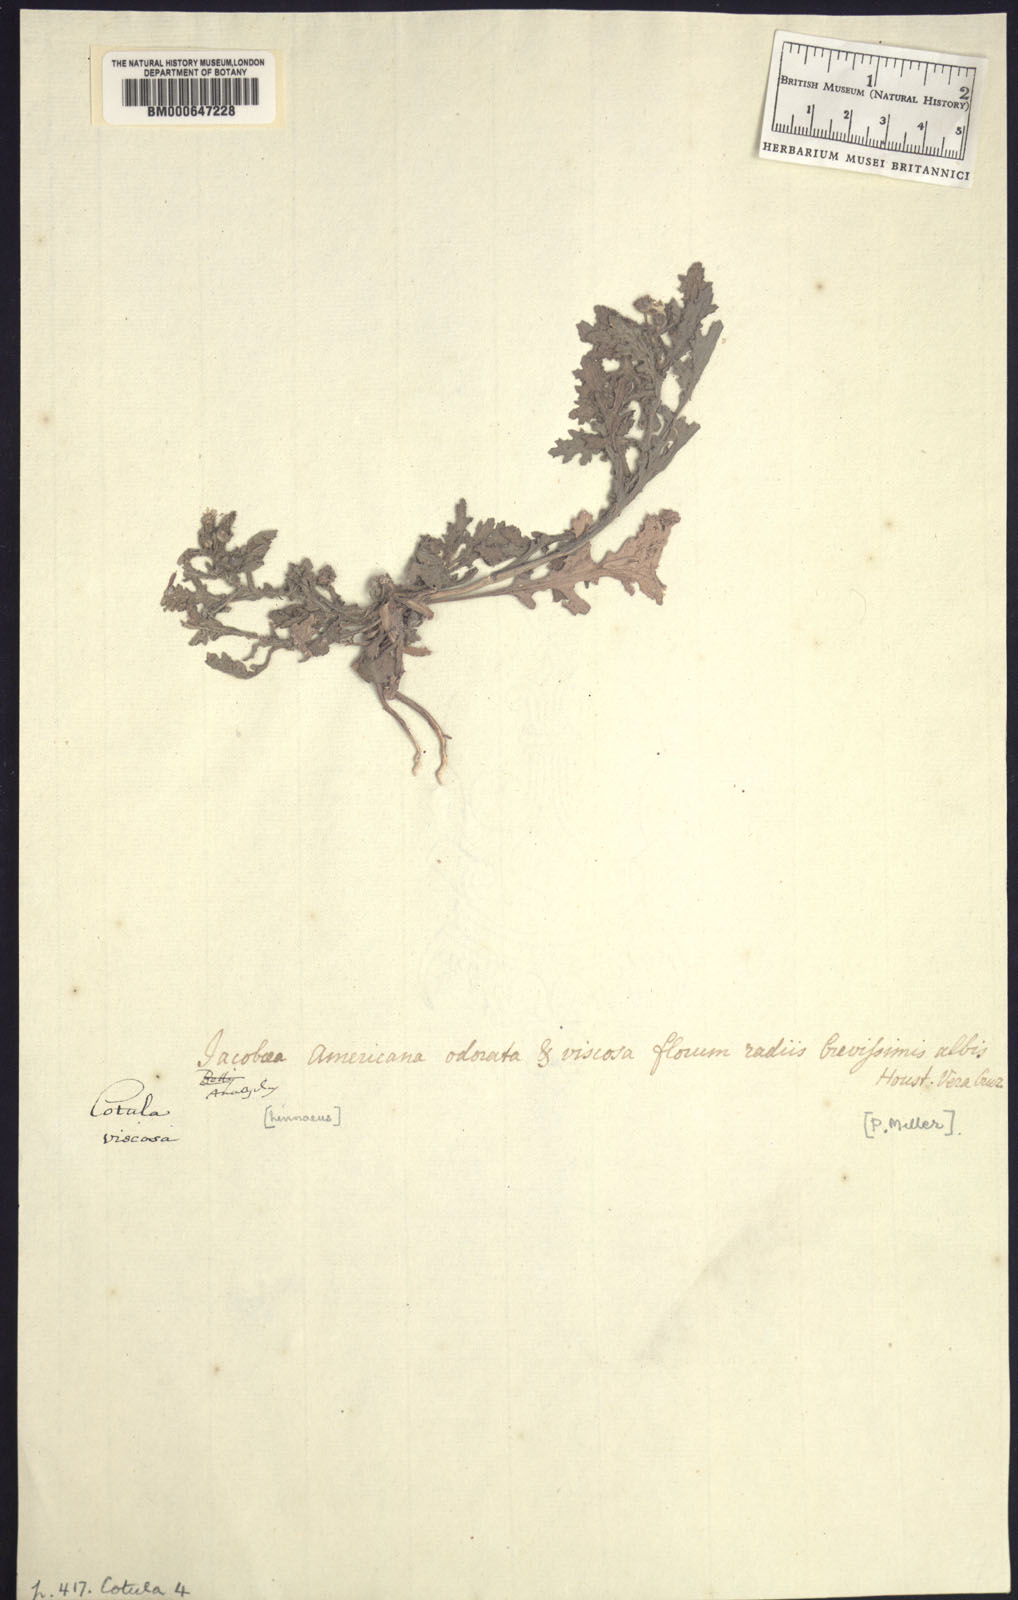 THE NATURAL HISTORY MUSEUM, LONDON
DEPARTMENT OF BOTANY
BM000647228
1 2
BRITISH MUSEUM (NATURAL HISTORY)
1 2 3 4 5
HERBARIUM MUSEI BRITANNICI
Jacobæa Americana odorata & viscosa florum radiis brevissimis albis
Houst. Vera Cruz
Cotula
viscosa
[Linnaeus]
[P. Miller].
p. 417. Cotula 4